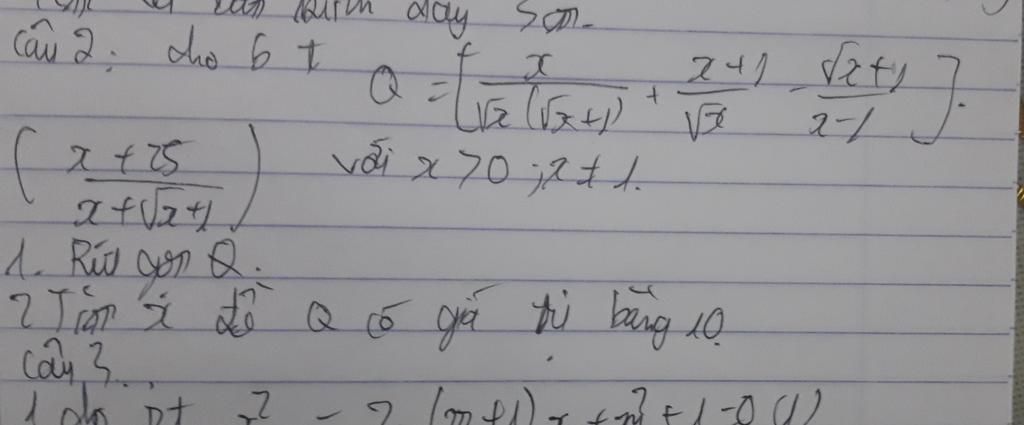 dãy sơn.
Câu 2: cho bt
Q = [x/(√x(√x+1)) + (x+1)/√x - (√x+1)/(x-1)].
((x+25)/(x+√x+1)) với x>0; x≠1.
1. Rút gọn Q.
2 Tìm x để Q có giá trị bằng 10.
Câu 3...
1 cho pt x² - 2(m+1)x + m² + 1 = 0 (1)